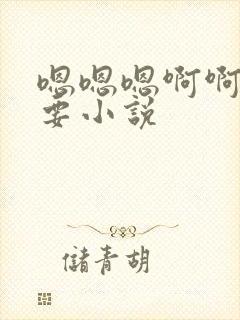 嗯嗯嗯啊啊
要小説
儲青胡